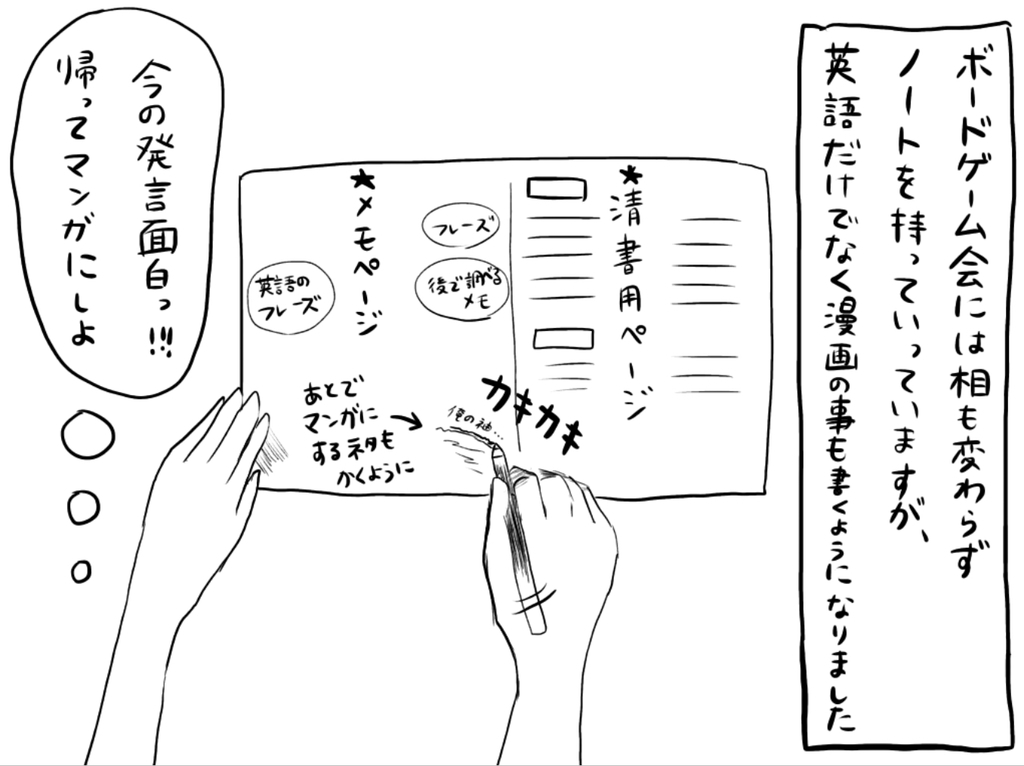 ボードゲーム会には相も変わらず
ノートを持っていっていますが、
英語だけでなく漫画の事も書くようになりました
★清書用ページ
★メモページ
フレーズ
後で調べる
メモ
英語の
フレーズ
カキカキ
俺の神…
あとで
マンガに
するネタも
かくように
今の発言面白っ!!!
帰ってマンガにしよ